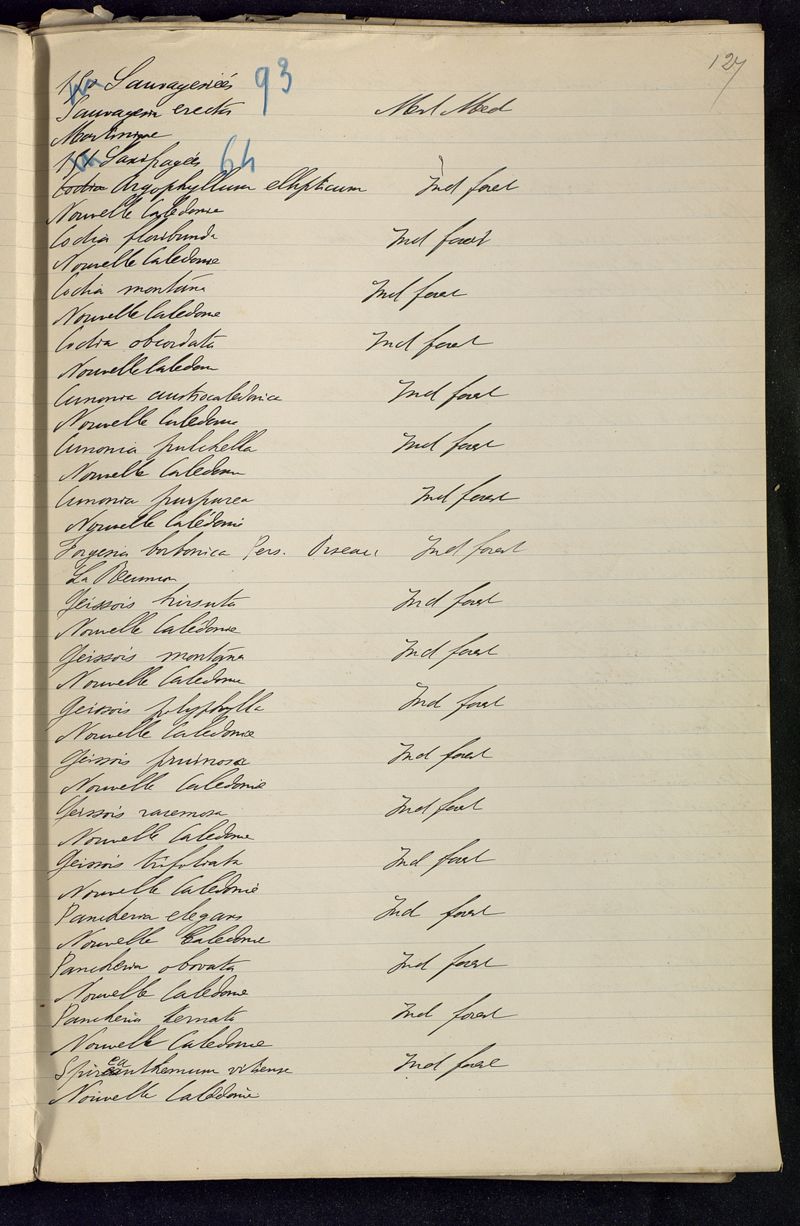 127
Sauvagesiées 93
Sauvagesia erecta Med Med
Martinique
Saxifragées 64
Codia Argophyllum ellipticum Ind forest
Nouvelle Calédonie
Codia floribunda Ind forest
Nouvelle Calédonie
Codia montana Ind forest
Nouvelle Calédonie
Codia obcordata Ind forest
Nouvelle Calédonie
Cunonia austrocaledonica Ind forest
Nouvelle Calédonie
Cunonia pulchella Ind forest
Nouvelle Calédonie
Cunonia purpurea Ind forest
Nouvelle Calédonie
Forgesia borbonica Pers. Ind forest
La Réunion
Geissois hirsuta Ind forest
Nouvelle Calédonie
Geissois montana Ind forest
Nouvelle Calédonie
Geissois polyphylla Ind forest
Nouvelle Calédonie
Geissois pruinosa Ind forest
Nouvelle Calédonie
Geissois racemosa Ind forest
Nouvelle Calédonie
Geissois trifoliata Ind forest
Nouvelle Calédonie
Pancheria elegans Ind forest
Nouvelle Calédonie
Pancheria obovata Ind forest
Nouvelle Calédonie
Pancheria ternata Ind forest
Nouvelle Calédonie
Spireanthemum vitiense Ind forest
Nouvelle Calédonie